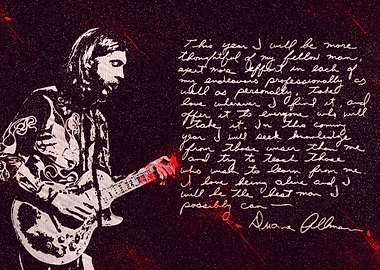 This year I will be more
thoughtful of my fellow man,
exert more effort in each of
my endeavors professionally as
well as personally. Take
love wherever I find it, and
offer it to everyone who will
take it. In this coming
year I will seek knowledge
from those wiser than me
and try to teach those
who wish to learn from me.
I love being alive and I
will be the best man I
possibly can—
Duane Allman